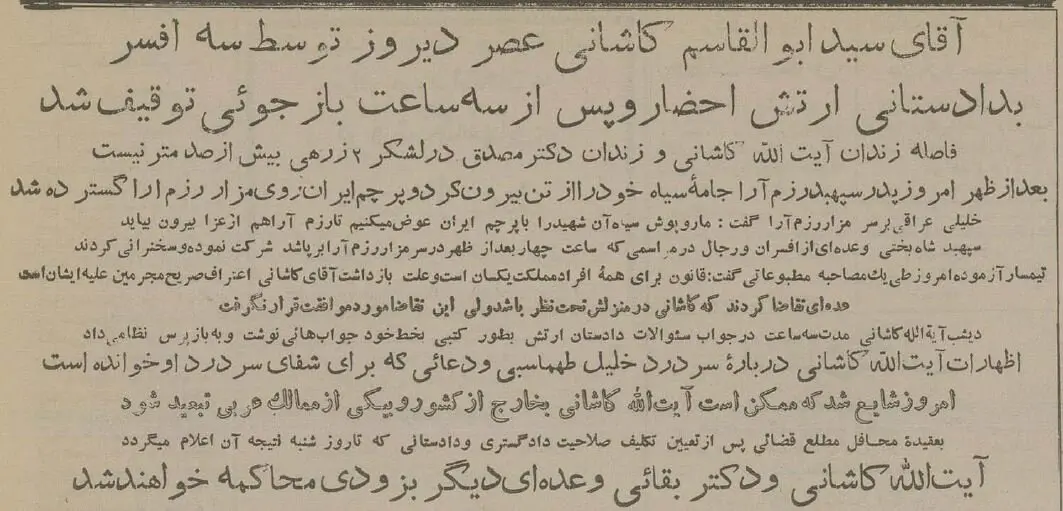 آقای سید ابوالقاسم کاشانی عصر دیروز توسط سه افسر
بدادستانی ارتش احضار وپس از سه ساعت بازجوئی توقیف شد
فاصله زندان آیت الله کاشانی و زندان دکتر مصدق در لشکر ۲ زرهی بیش از صد متر نیست
بعد از ظهر امروز پدر سپهبد رزم آرا جامهٔ سیاه خود را از تن بیرون کرد و پرچم ایران روی مزار رزم آرا گسترده شد
خلیلی عراقی بر سر مزار رزم آرا گفت : ما روپوش سیاه آن شهید را با پرچم ایران عوض میکنیم تا رزم آرا هم از عزا بیرون بیاید
سپهبد شاه بختی وعده ای از افسران ورجال در مراسمی که ساعت چهار بعد از ظهر در سر مزار رزم آرا برپا شد شرکت نموده وسخنرانی کردند
تیمسار آزموده امروز طی یك مصاحبه مطبوعاتی گفت: قانون برای همهٔ افراد مملکت یکسان است وعلت بازداشت آقای کاشانی اعتراف صریح مجرمین علیه ایشان است
عده ای تقاضا کردند که کاشانی در منزلش تحت نظر باشد ولی این تقاضا مورد موافقت قرار نگرفت
دیشب آیة الله کاشانی مدت سه ساعت در جواب سئوالات دادستان ارتش بطور کتبی بخط خود جواب هائی نوشت و به بازپرس نظامی داد
اظهارات آیت الله کاشانی در بارهٔ سر درد خلیل طهماسبی ودعائی که برای شفای سر درد او خوانده است
امروز شایع شد که ممکن است آیت الله کاشانی بخارج از کشور و بیکی از ممالك عربی تبعید شود
بعقیدهٔ محافل مطلع قضائی پس از تعیین تکلیف صلاحیت دادگستری ودادستانی که تا روز شنبه نتیجه آن اعلام میگردد
آیت الله کاشانی ودکتر بقائی وعده ای دیگر بزودی محاکمه خواهند شد